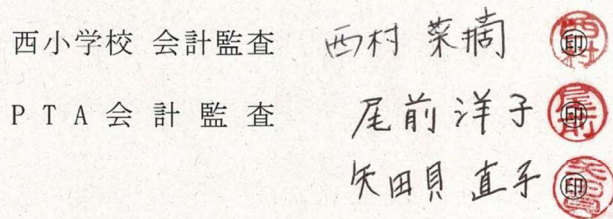 西小学校 会計監査 西村 菜摘 ㊞
PTA会計監査 尾前洋子 ㊞
矢田貝 直子 ㊞